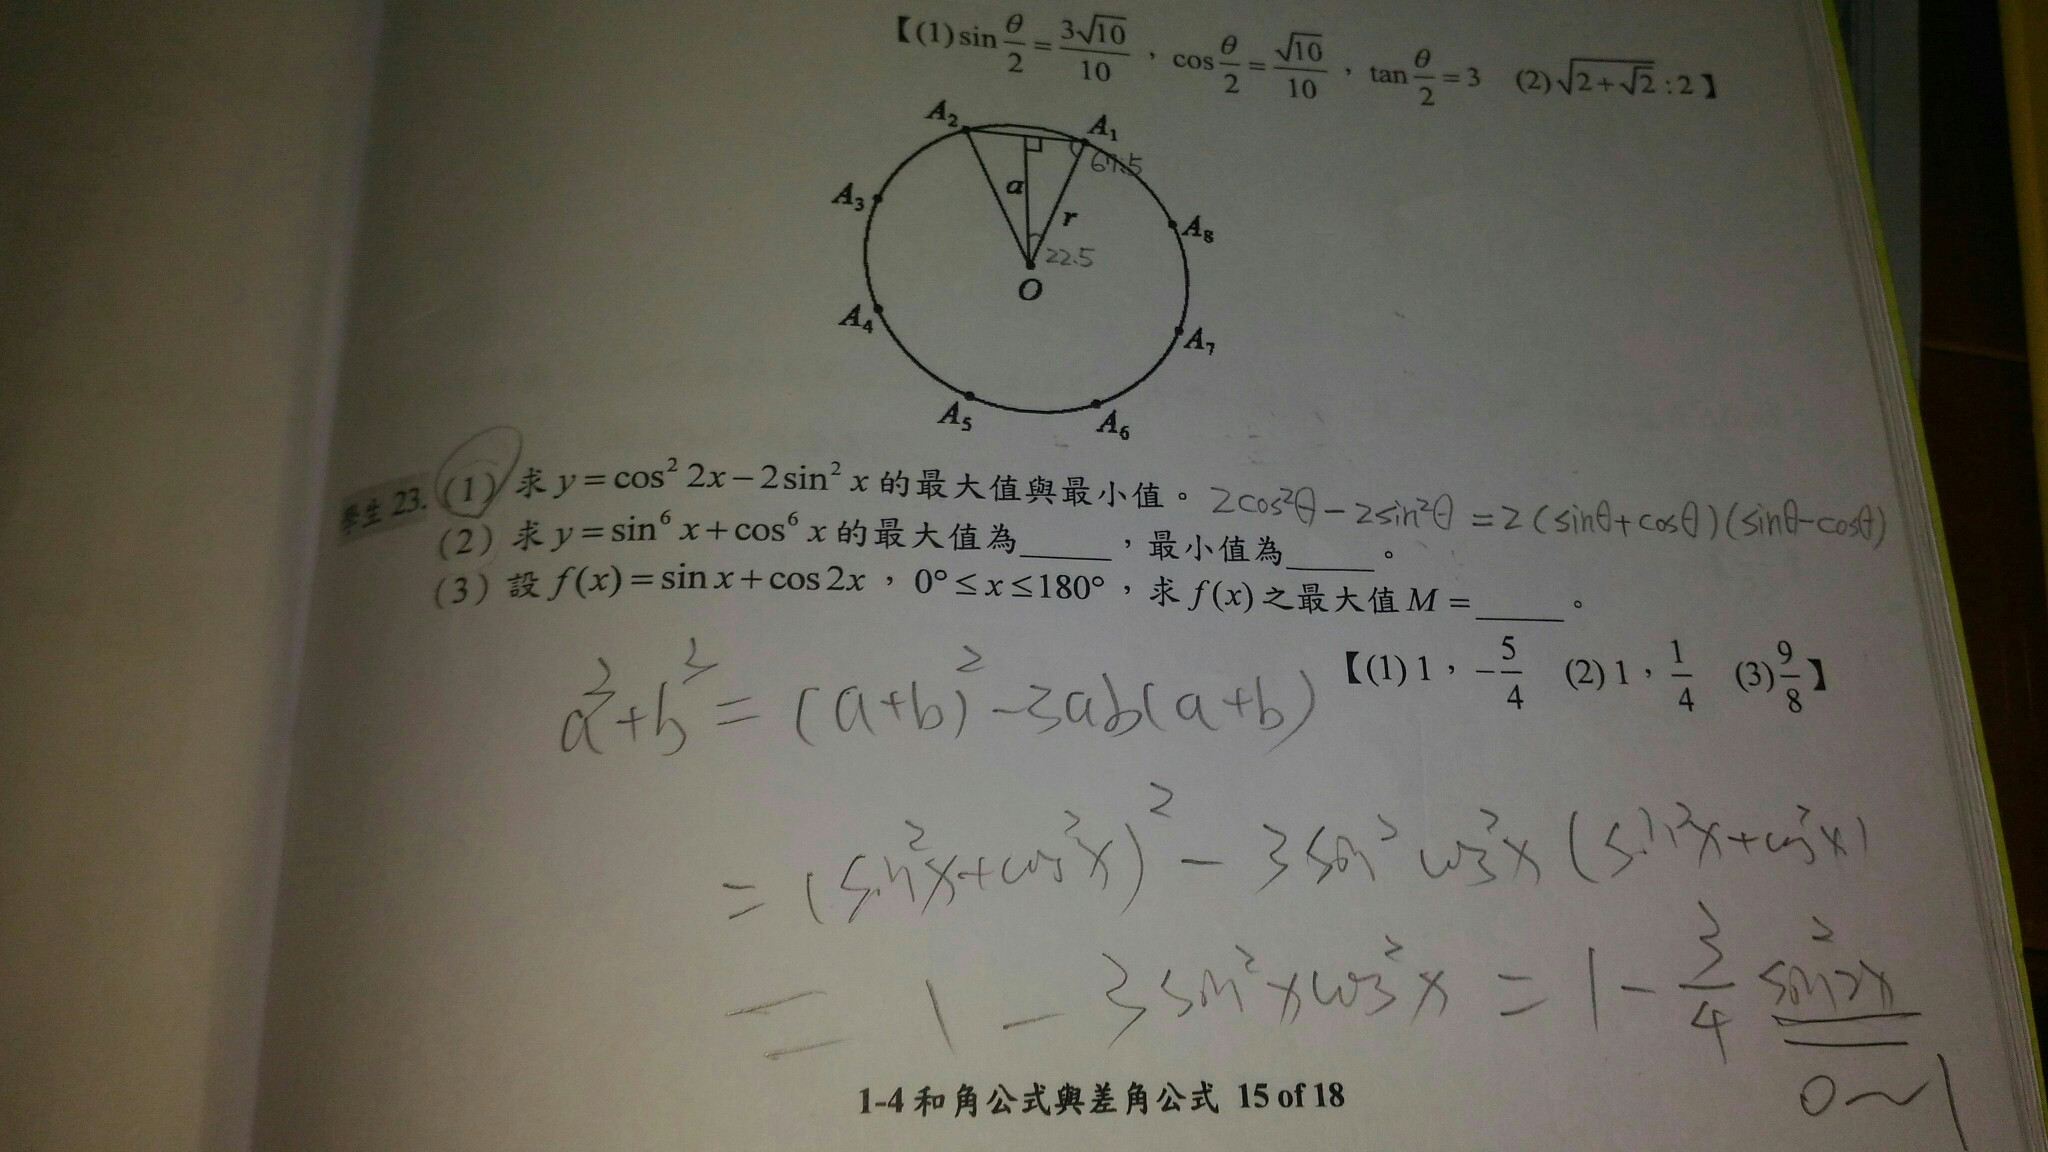 【(1) sin θ/2 = 3√10/10 , cos θ/2 = √10/10 , tan θ/2 = 3 (2) √(2+√2) : 2】
A₂ A₁
67.5
A₃ a r A₈
22.5
O
A₄ A₇
A₅ A₆
學生 23. (1) 求 y = cos² 2x − 2 sin² x 的最大值與最小值。 2cos²θ − 2sin²θ = 2(sinθ+cosθ)(sinθ−cosθ)
(2) 求 y = sin⁶ x + cos⁶ x 的最大值為_____,最小值為_____。
(3) 設 f(x) = sin x + cos 2x , 0° ≤ x ≤ 180° ,求 f(x) 之最大值 M = _____。
【(1) 1 , −5/4 (2) 1 , 1/4 (3) 9/8】
a³ + b³ = (a+b)² − 3ab(a+b)
= (sin²x + cos²x)² − 3 sin² cos²x (sin²x + cos²x)
= 1 − 3 sin²x cos²x = 1 − 3/4 sin²2x
0~1
1-4 和角公式與差角公式 15 of 18